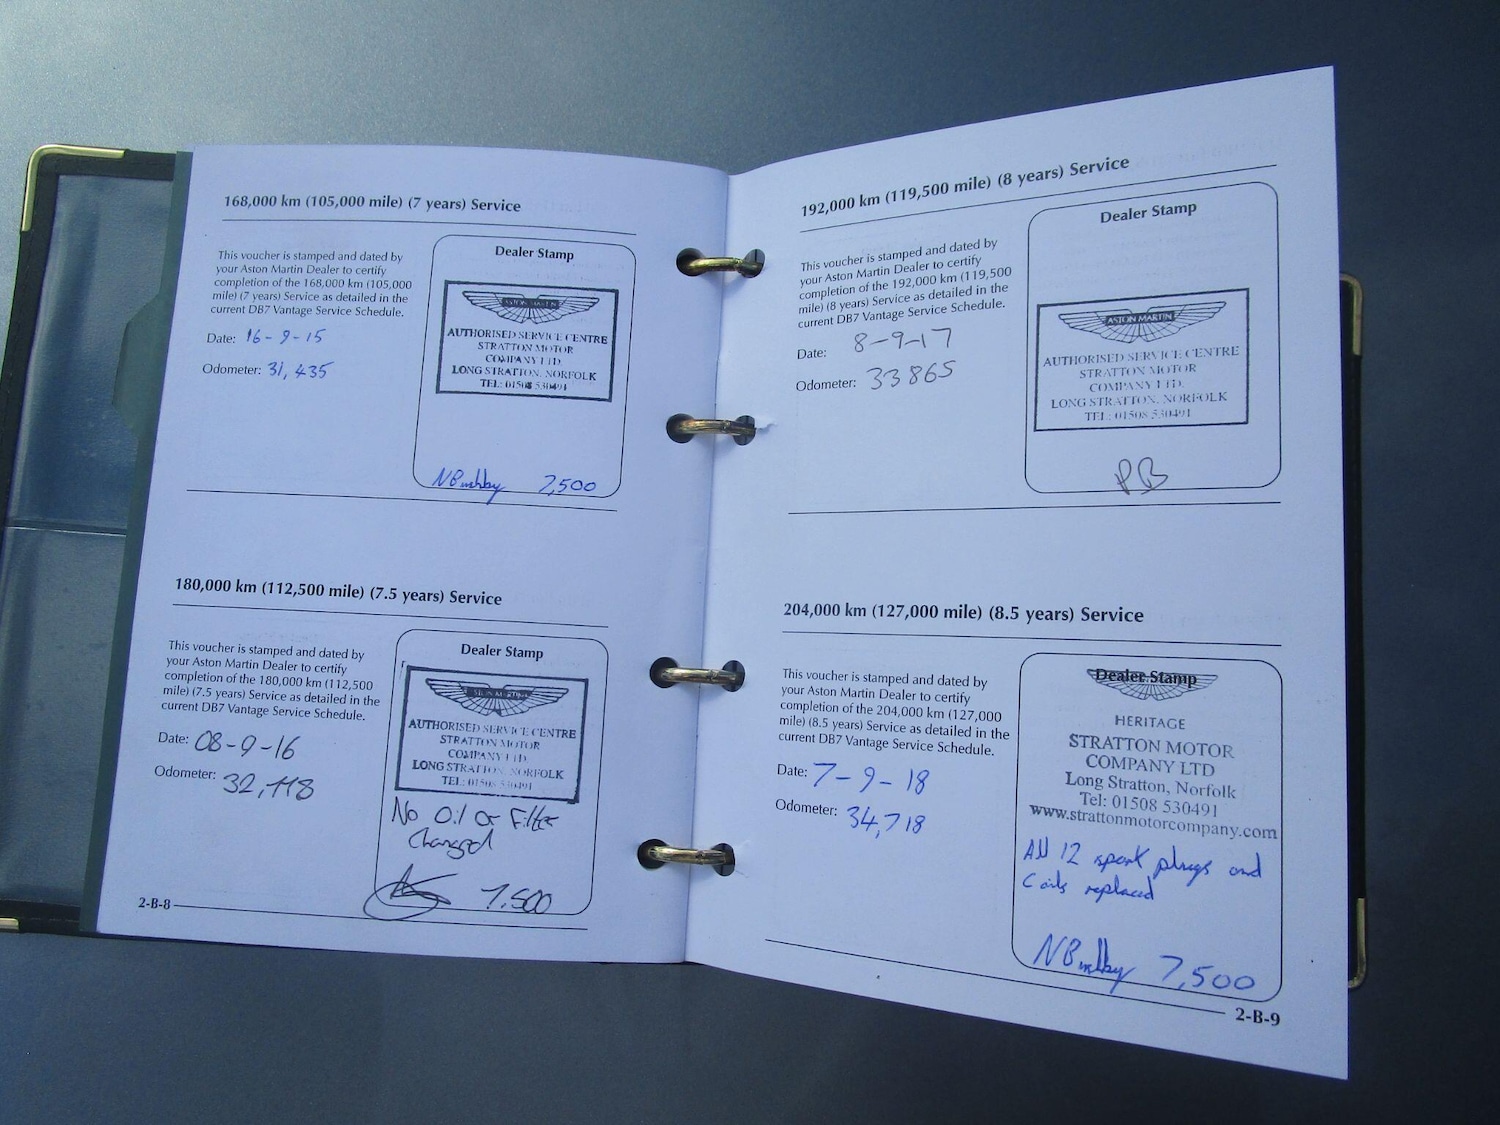 168,000 km (105,000 mile) (7 years) Service
This voucher is stamped and dated by
your Aston Martin Dealer to certify
completion of the 168,000 km (105,000
mile) (7 years) Service as detailed in the
current DB7 Vantage Service Schedule.
Date: 16-9-15
Odometer: 31,435
Dealer Stamp
ASTON MARTIN
AUTHORISED SERVICE CENTRE
STRATTON MOTOR
COMPANY LTD.
LONG STRATTON, NORFOLK
TEL: 01508 530491
NBushby 7,500
180,000 km (112,500 mile) (7.5 years) Service
This voucher is stamped and dated by
your Aston Martin Dealer to certify
completion of the 180,000 km (112,500
mile) (7.5 years) Service as detailed in the
current DB7 Vantage Service Schedule.
Date: 08-9-16
Odometer: 32,118
Dealer Stamp
ASTON MARTIN
AUTHORISED SERVICE CENTRE
STRATTON MOTOR
COMPANY LTD.
LONG STRATTON, NORFOLK
TEL: 01508 530491
No Oil or Filter
Changed
7,500
2-B-8
192,000 km (119,500 mile) (8 years) Service
This voucher is stamped and dated by
your Aston Martin Dealer to certify
completion of the 192,000 km (119,500
mile) (8 years) Service as detailed in the
current DB7 Vantage Service Schedule.
Date: 8-9-17
Odometer: 33865
Dealer Stamp
ASTON MARTIN
AUTHORISED SERVICE CENTRE
STRATTON MOTOR
COMPANY LTD.
LONG STRATTON, NORFOLK
TEL: 01508 530491
PB
204,000 km (127,000 mile) (8.5 years) Service
This voucher is stamped and dated by
your Aston Martin Dealer to certify
completion of the 204,000 km (127,000
mile) (8.5 years) Service as detailed in the
current DB7 Vantage Service Schedule.
Date: 7-9-18
Odometer: 34,718
Dealer Stamp
HERITAGE
STRATTON MOTOR
COMPANY LTD
Long Stratton, Norfolk
Tel: 01508 530491
www.strattonmotorcompany.com
All 12 spark plugs and
Coils replaced
NBushby 7,500
2-B-9